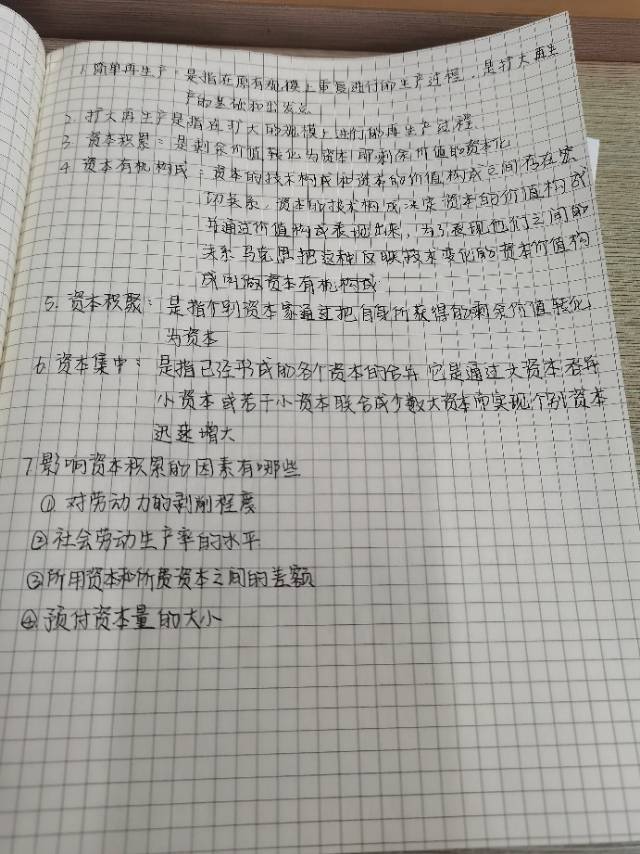 1 简单再生产：是指在原有规模上重复进行的生产过程，是扩大再生
产的基础和出发点
2. 扩大再生产是指在扩大的规模上进行的再生产过程
3 资本积累：是剩余价值转化为资本即剩余价值的资本化
4 资本有机构成：资本的技术构成和资本的价值构成之间存在密
切关系，资本的技术构成决定资本的价值构成
并通过价值构成表现出来，为了表现他们之间的
关系马克思把这种反映技术变化的资本价值构
成叫做资本有机构成
5. 资本积聚：是指个别资本家通过把自身所获得的剩余价值转化
为资本
6 资本集中：是指已经形成的各个资本的合并它是通过大资本吞并
小资本或若干小资本联合成少数大资本而实现个别资本
迅速增大
7.影响资本积累的因素有哪些
① 对劳动力的剥削程度
②社会劳动生产率的水平
③所用资本和所费资本之间的差额
④预付资本量的大小